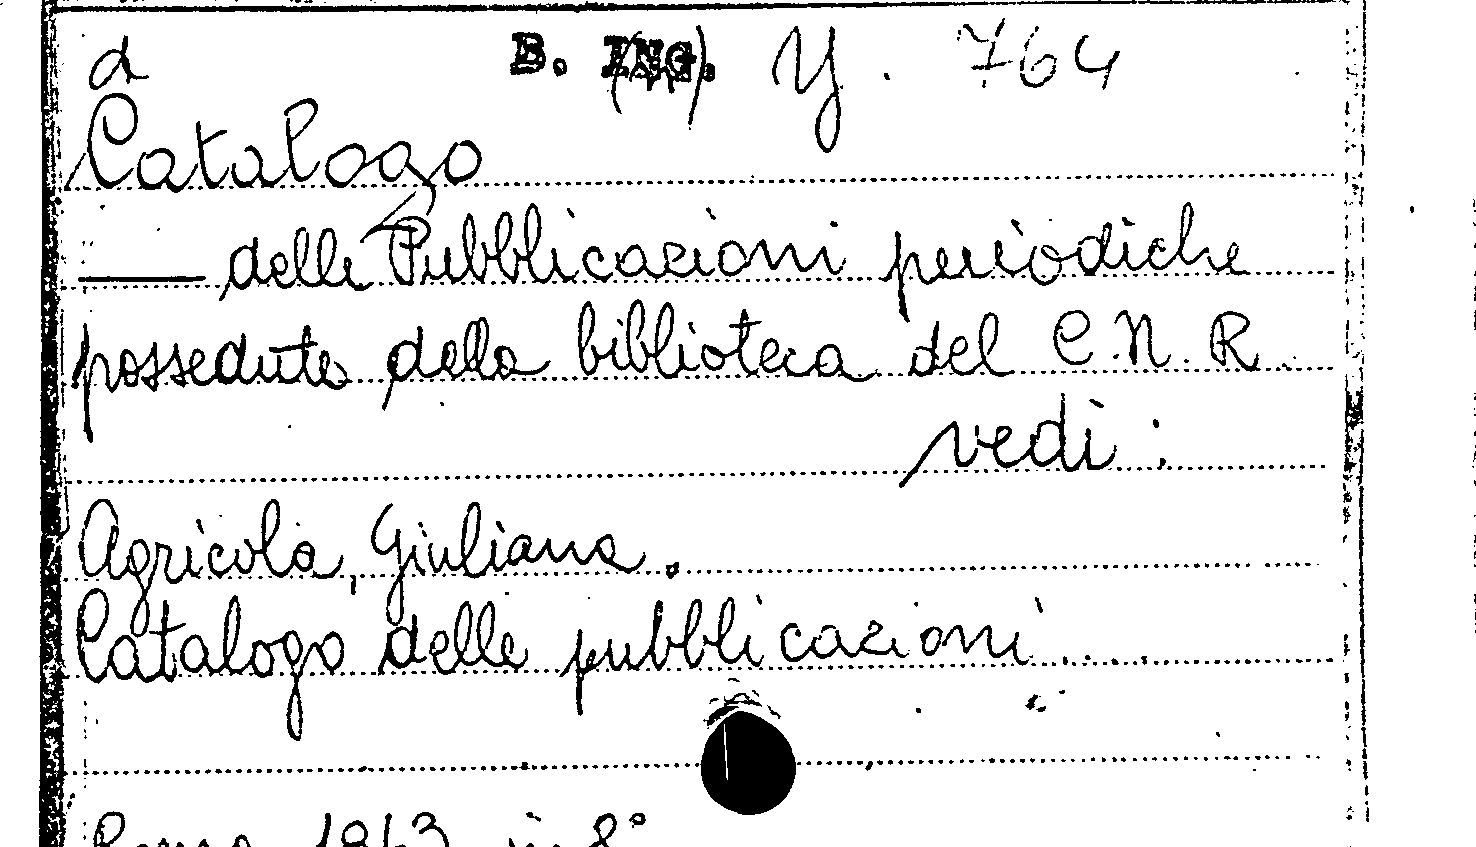 d B. ING. Y. 764
Catalogo
—— delle Pubblicazioni periodiche
possedute dalla biblioteca del C.N.R.
vedi:
Agricola, Giuliana.
Catalogo delle pubblicazioni....
Roma 1963 in 8°